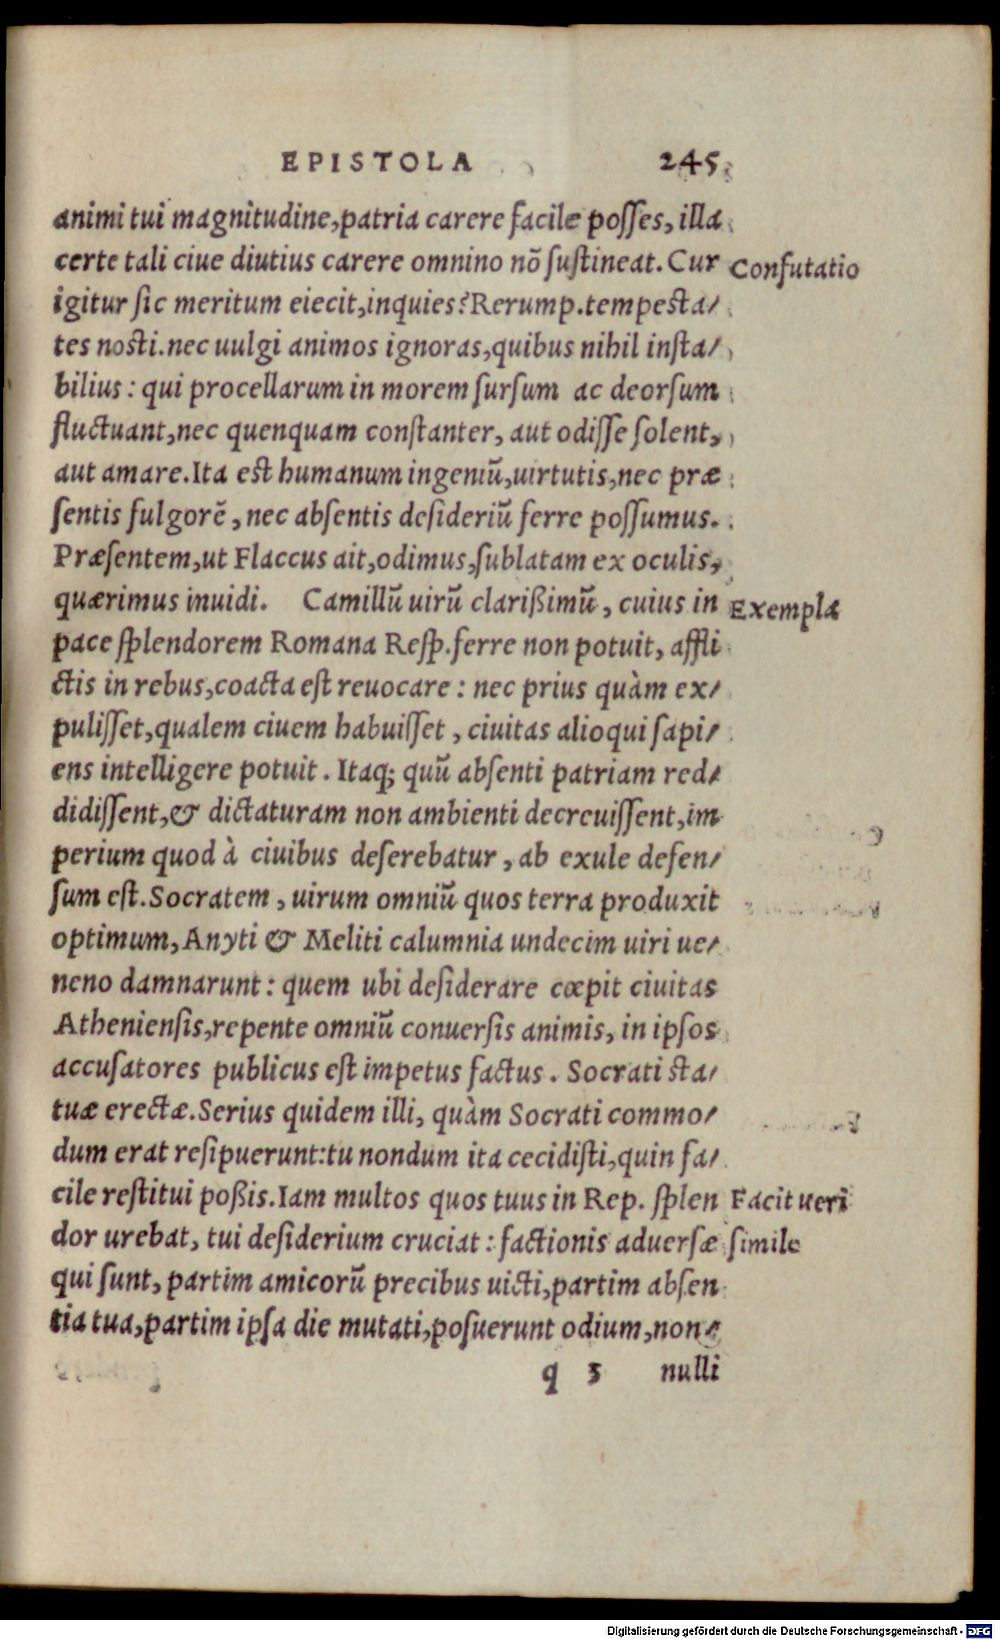 EPISTOLA 245
animi tui magnitudine,patria carere facile poſſes, illa
certe tali ciue diutius carere omnino nõ ſuſtineat. Cur
Confutatio
igitur ſic meritum eiecit,inquies? Rerump.tempesta/
tes nosti.nec uulgi animos ignoras,quibus nihil insta/
bilius: qui procellarum in morem ſurſum ac deorſum
fluctuant,nec quenquam conſtanter, aut odiſſe ſolent,
aut amare.Ita est humanum ingeniũ,uirtutis,nec præ
ſentis fulgorẽ, nec abſentis deſideriũ ferre poſſumus.
Præſentem,ut Flaccus ait,odimus,ſublatam ex oculis,
quærimus inuidi. Camillũ uirũ clarißimũ, cuius in
Exempla
pace ſplendorem Romana Reſp.ferre non potuit, affli
ctis in rebus,coacta eſt reuocare: nec prius quàm ex/
puliſſet,qualem ciuem habuiſſet, ciuitas alioqui ſapi/
ens intelligere potuit. Itaq; quũ abſenti patriam red/
didiſſent,& dictaturam non ambienti decreuiſſent,im
perium quod à ciuibus deſerebatur, ab exule defen/
ſum eſt.Socratem, uirum omniũ quos terra produxit
optimum, Anyti & Meliti calumnia undecim uiri ue/
neno damnarunt: quem ubi deſiderare cœpit ciuitas
Athenienſis,repente omniũ conuerſis animis, in ipſos
accuſatores publicus eſt impetus factus. Socrati sta/
tuæ erectæ.Serius quidem illi, quàm Socrati commo/
dum erat reſipuerunt:tu nondum ita cecidiſti,quin fa/
cile reſtitui poßis.Iam multos quos tuus in Rep. ſplen
Facit ueri
dor urebat, tui deſiderium cruciat: factionis aduerſæ
simile
qui ſunt, partim amicorũ precibus uicti,partim abſen
tia tua,partim ipſa die mutati,poſuerunt odium,non/
q 3 nulli
Digitalisierung gefördert durch die Deutsche Forschungsgemeinschaft - DFG